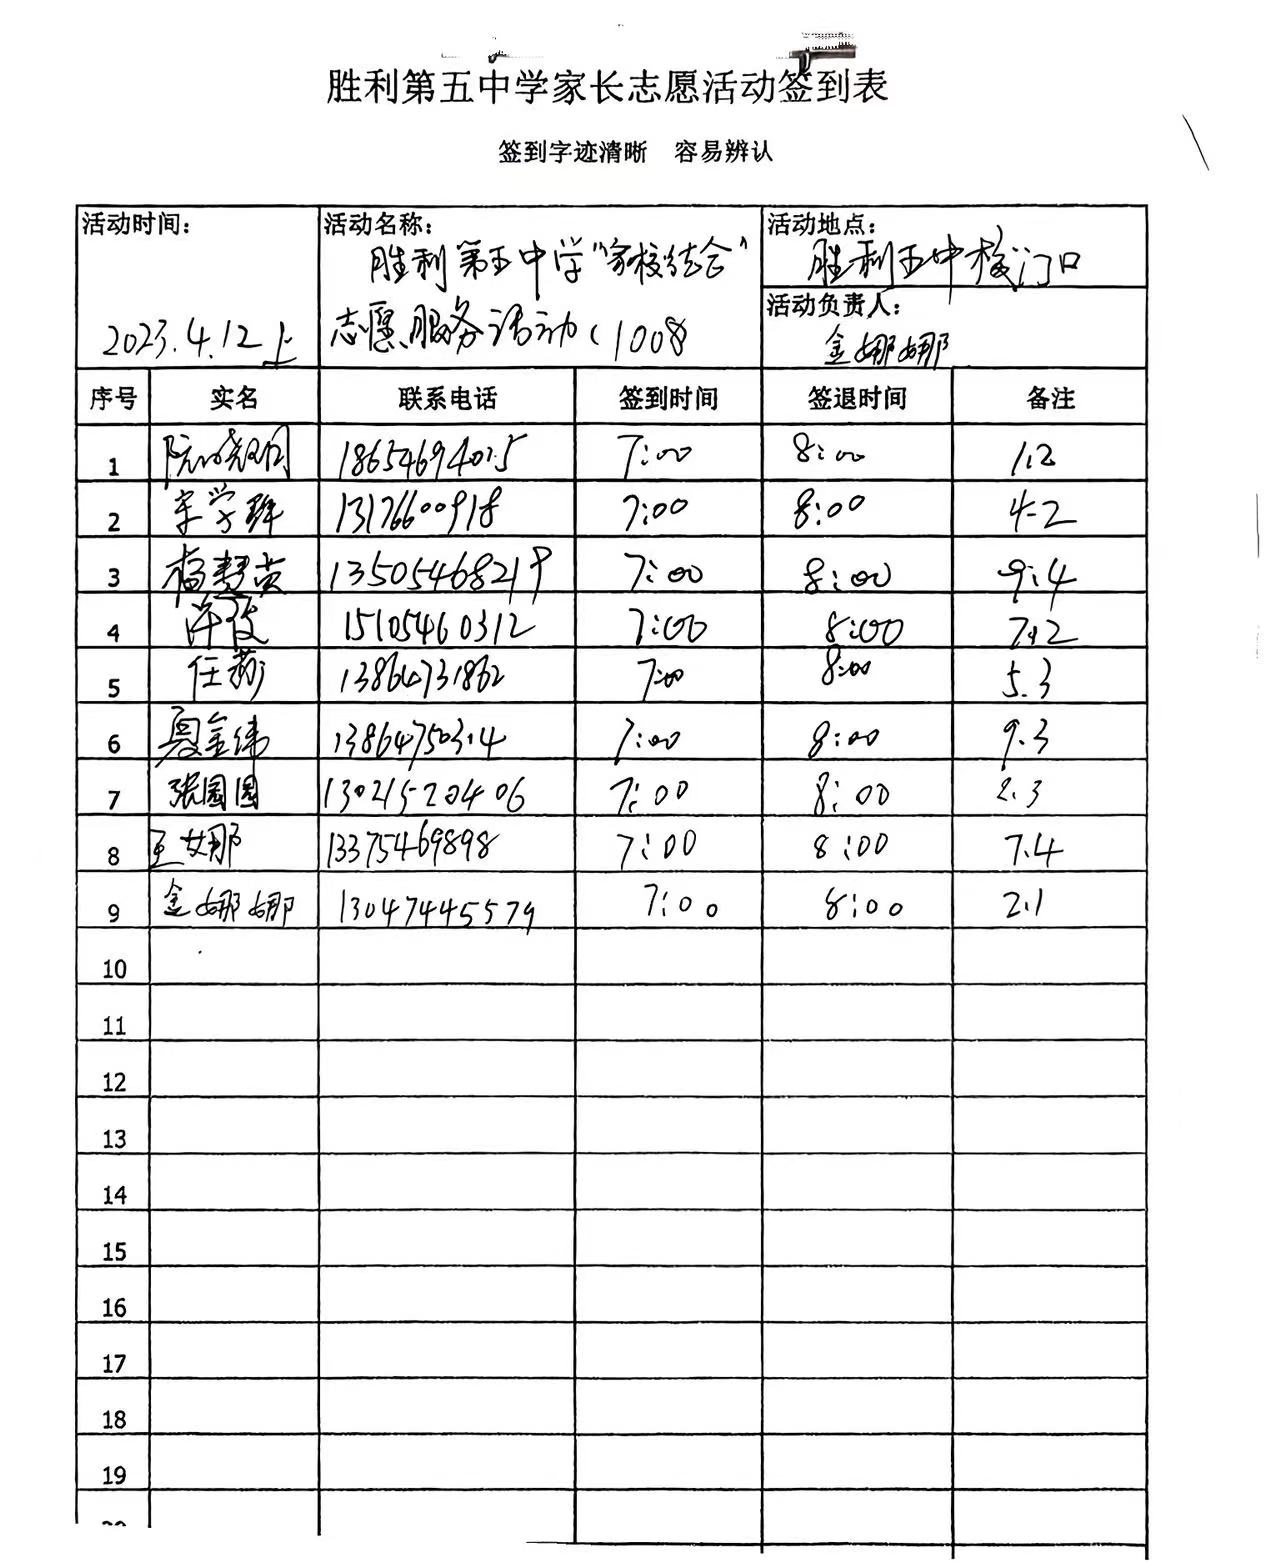 胜利第五中学家长志愿活动签到表
签到字迹清晰 容易辨认
活动时间: 活动名称: 活动地点:
胜利第五中学"家校结合" 胜利五中校门口
活动负责人:
2023.4.12上 志愿服务活动(1008 金娜娜
序号 实名 联系电话 签到时间 签退时间 备注
1 7:00 8:00 1.2
2 13176600918 7:00 8:00 4.2
3 杨慧英 13505468219 7:00 8:00 9:4
4 15105460312 7:00 8:00 7.2
5 任 13864731862 7:00 8:00 5.3
6 夏金伟 13864750314 7:00 8:00 9.3
7 张园园 13021520406 7:00 8:00 2.3
8 王娜 13375469898 7:00 8:00 7.4
9 金娜娜 13047445579 7:00 8:00 2.1
10
11
12
13
14
15
16
17
18
19